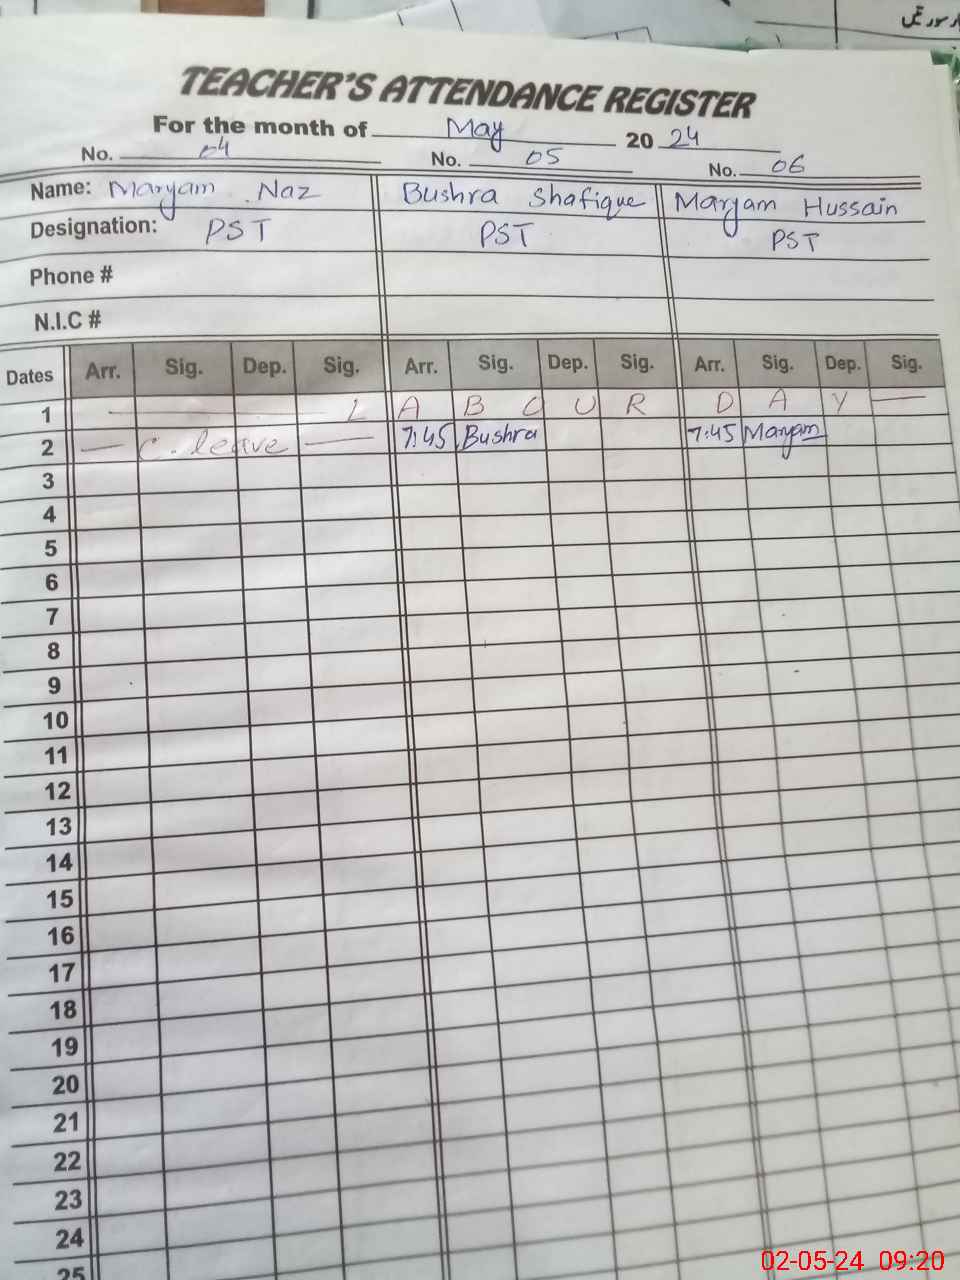 ر سورتیں
TEACHER'S ATTENDANCE REGISTER
For the month of May 20 24
No. 04 No. 05 No. 06
Name: Maryam Naz Bushra Shafique Maryam Hussain
Designation: PST PST PST
Phone #
N.I.C #
Dates Arr. Sig. Dep. Sig. Arr. Sig. Dep. Sig. Arr. Sig. Dep. Sig.
1 — L A B O U R D A Y —
2 — C. leave — 7:45 Bushra 7:45 Maryam
3
4
5
6
7
8
9
10
11
12
13
14
15
16
17
18
19
20
21
22
23
24
25
02-05-24 09:20